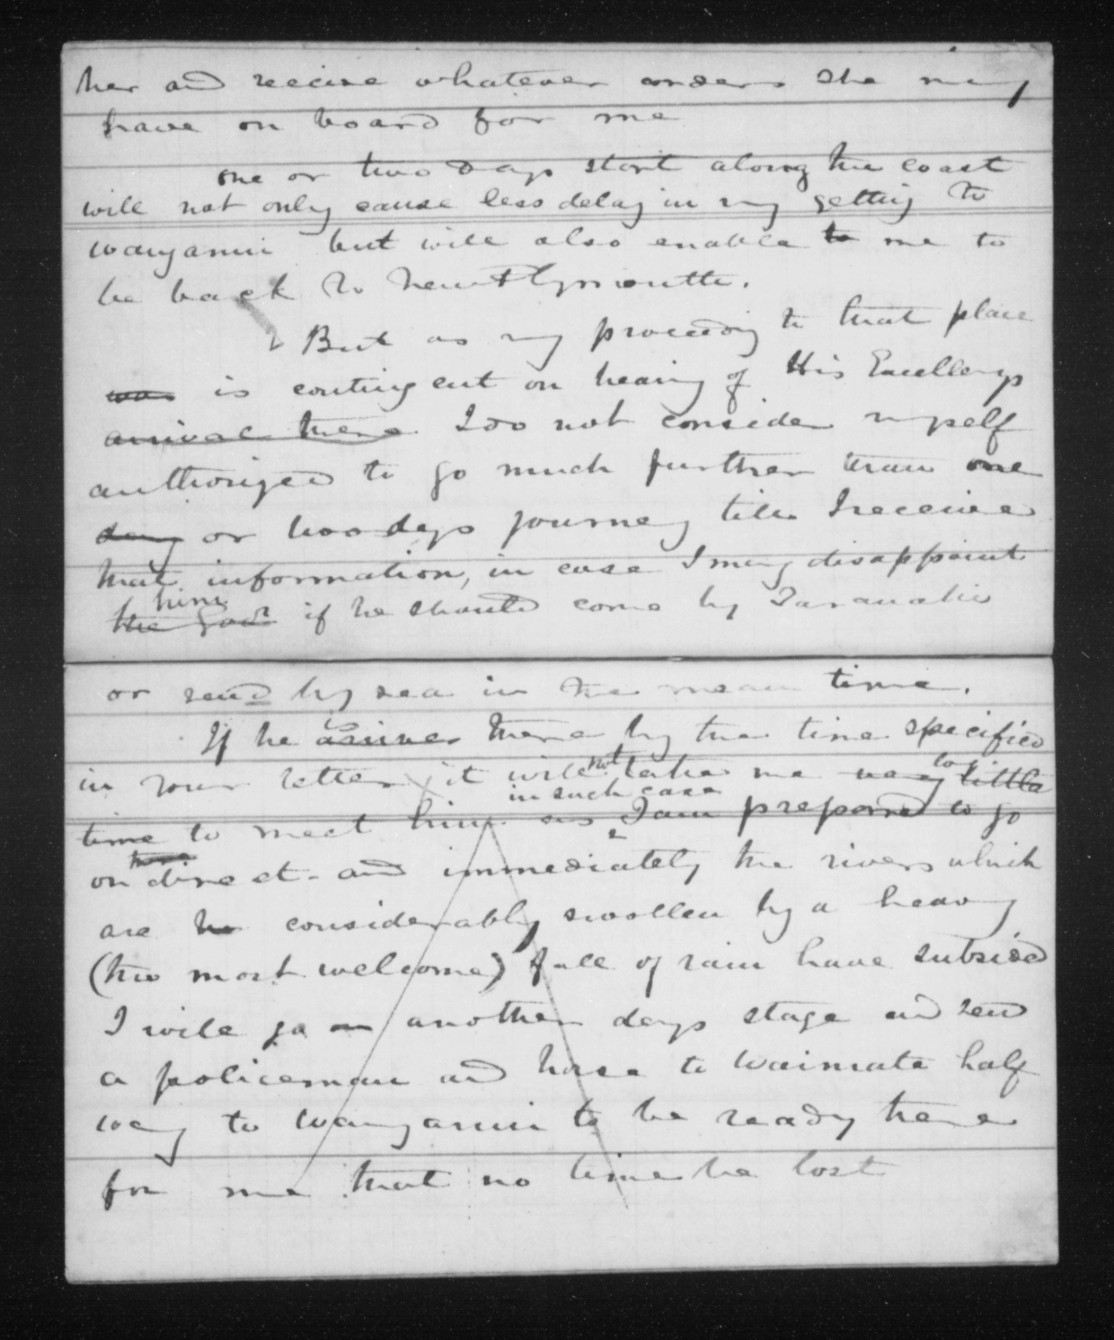 her and receive whatever orders she may
have on board for me
one or two days start along the coast
will not only cause less delay in my getting to
Wanganui but will also enable to me to
be back to New Plymouth.
But as my proceeding to that place
was is contingent on hearing of His Excellencys
arrival there I do not consider myself
authorized to go much further than one
day or two days journey till I receive
that information, in case I may disappoint
him
the Govr if he should come by Taranaki
or send by sea in the mean time.
If he arrives there by the time specified
in your letter it will not take me very long little
in such case
time to meet him as I am prepared to go
on there direct - and immediately the rivers which
are considerably swollen by a heavy
(tho most welcome) fall of rain have subsided
I will go on another days stage and send
a policeman and horse to Waimate half
way to Wanganui to be ready there
for me that no time be lost